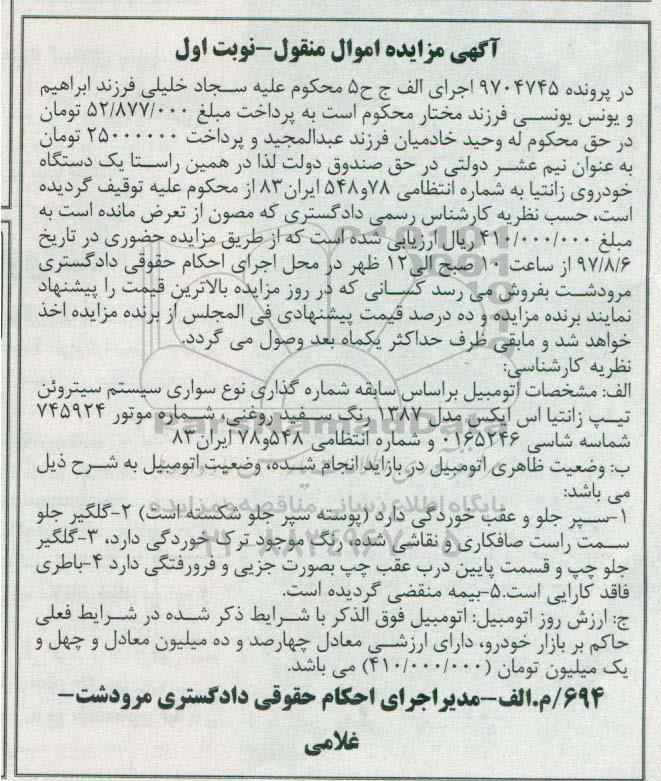 آگهی مزایده اموال منقول-نوبت اول
در پرونده ۹۷۰۴۷۴۵ اجرای الف ج ح۵ محکوم علیه سجاد خلیلی فرزند ابراهیم
و یونس یونسی فرزند مختار محکوم است به پرداخت مبلغ ۵۲/۸۷۷/۰۰۰ تومان
در حق محکوم له وحید خادمیان فرزند عبدالمجید و پرداخت ۲۵۰۰۰۰۰۰ تومان
به عنوان نیم عشر دولتی در حق صندوق دولت لذا در همین راستا یک دستگاه
خودروی زانتیا به شماره انتظامی ۷۸و۵۴۸ ایران۸۳ از محکوم علیه توقیف گردیده
است، حسب نظریه کارشناس رسمی دادگستری که مصون از تعرض مانده است به
مبلغ ۴۱۰/۰۰۰/۰۰۰ ریال ارزیابی شده است که از طریق مزایده حضوری در تاریخ
۹۷/۸/۶ از ساعت۱۱ صبح الی۱۲ ظهر در محل اجرای احکام حقوقی دادگستری
مرودشت بفروش می رسد کسانی که در روز مزایده بالاترین قیمت را پیشنهاد
نمایند برنده مزایده و ده درصد قیمت پیشنهادی فی المجلس از برنده مزایده اخذ
خواهد شد و مابقی ظرف حداکثر یکماه بعد وصول می گردد.
نظریه کارشناسی:
الف: مشخصات اتومبیل براساس سابقه شماره گذاری نوع سواری سیستم سیتروئن
تیپ زانتیا اس ایکس مدل ۱۳۸۷ رنگ سفید روغنی، شماره موتور ۷۴۵۹۲۴
شماسه شاسی ۰۱۶۵۲۴۶ و شماره انتظامی ۵۴۸و۷۸ ایران۸۳
ب: وضعیت ظاهری اتومبیل در بازاید انجام شده، وضعیت اتومبیل به شرح ذیل
می باشد:
۱-سپر جلو و عقب خوردگی دارد (پوسته سپر جلو شکسته است) ۲-گلگیر جلو
سمت راست صافکاری و نقاشی شده، رنگ موجود ترک خوردگی دارد، ۳-گلگیر
جلو چپ و قسمت پایین درب عقب چپ بصورت جزیی و فرورفتگی دارد ۴-باطری
فاقد کارایی است.۵-بیمه منقضی گردیده است.
ج: ارزش روز اتومبیل: اتومبیل فوق الذکر با شرایط ذکر شده در شرایط فعلی
حاکم بر بازار خودرو، دارای ارزشی معادل چهارصد و ده میلیون معادل و چهل و
یک میلیون تومان (۴۱۰/۰۰۰/۰۰۰) می باشد.
۶۹۴/م.الف-مدیراجرای احکام حقوقی دادگستری مرودشت-
غلامی
ParsNamadData
پایگاه اطلاع رسانی مناقصه و مزایده